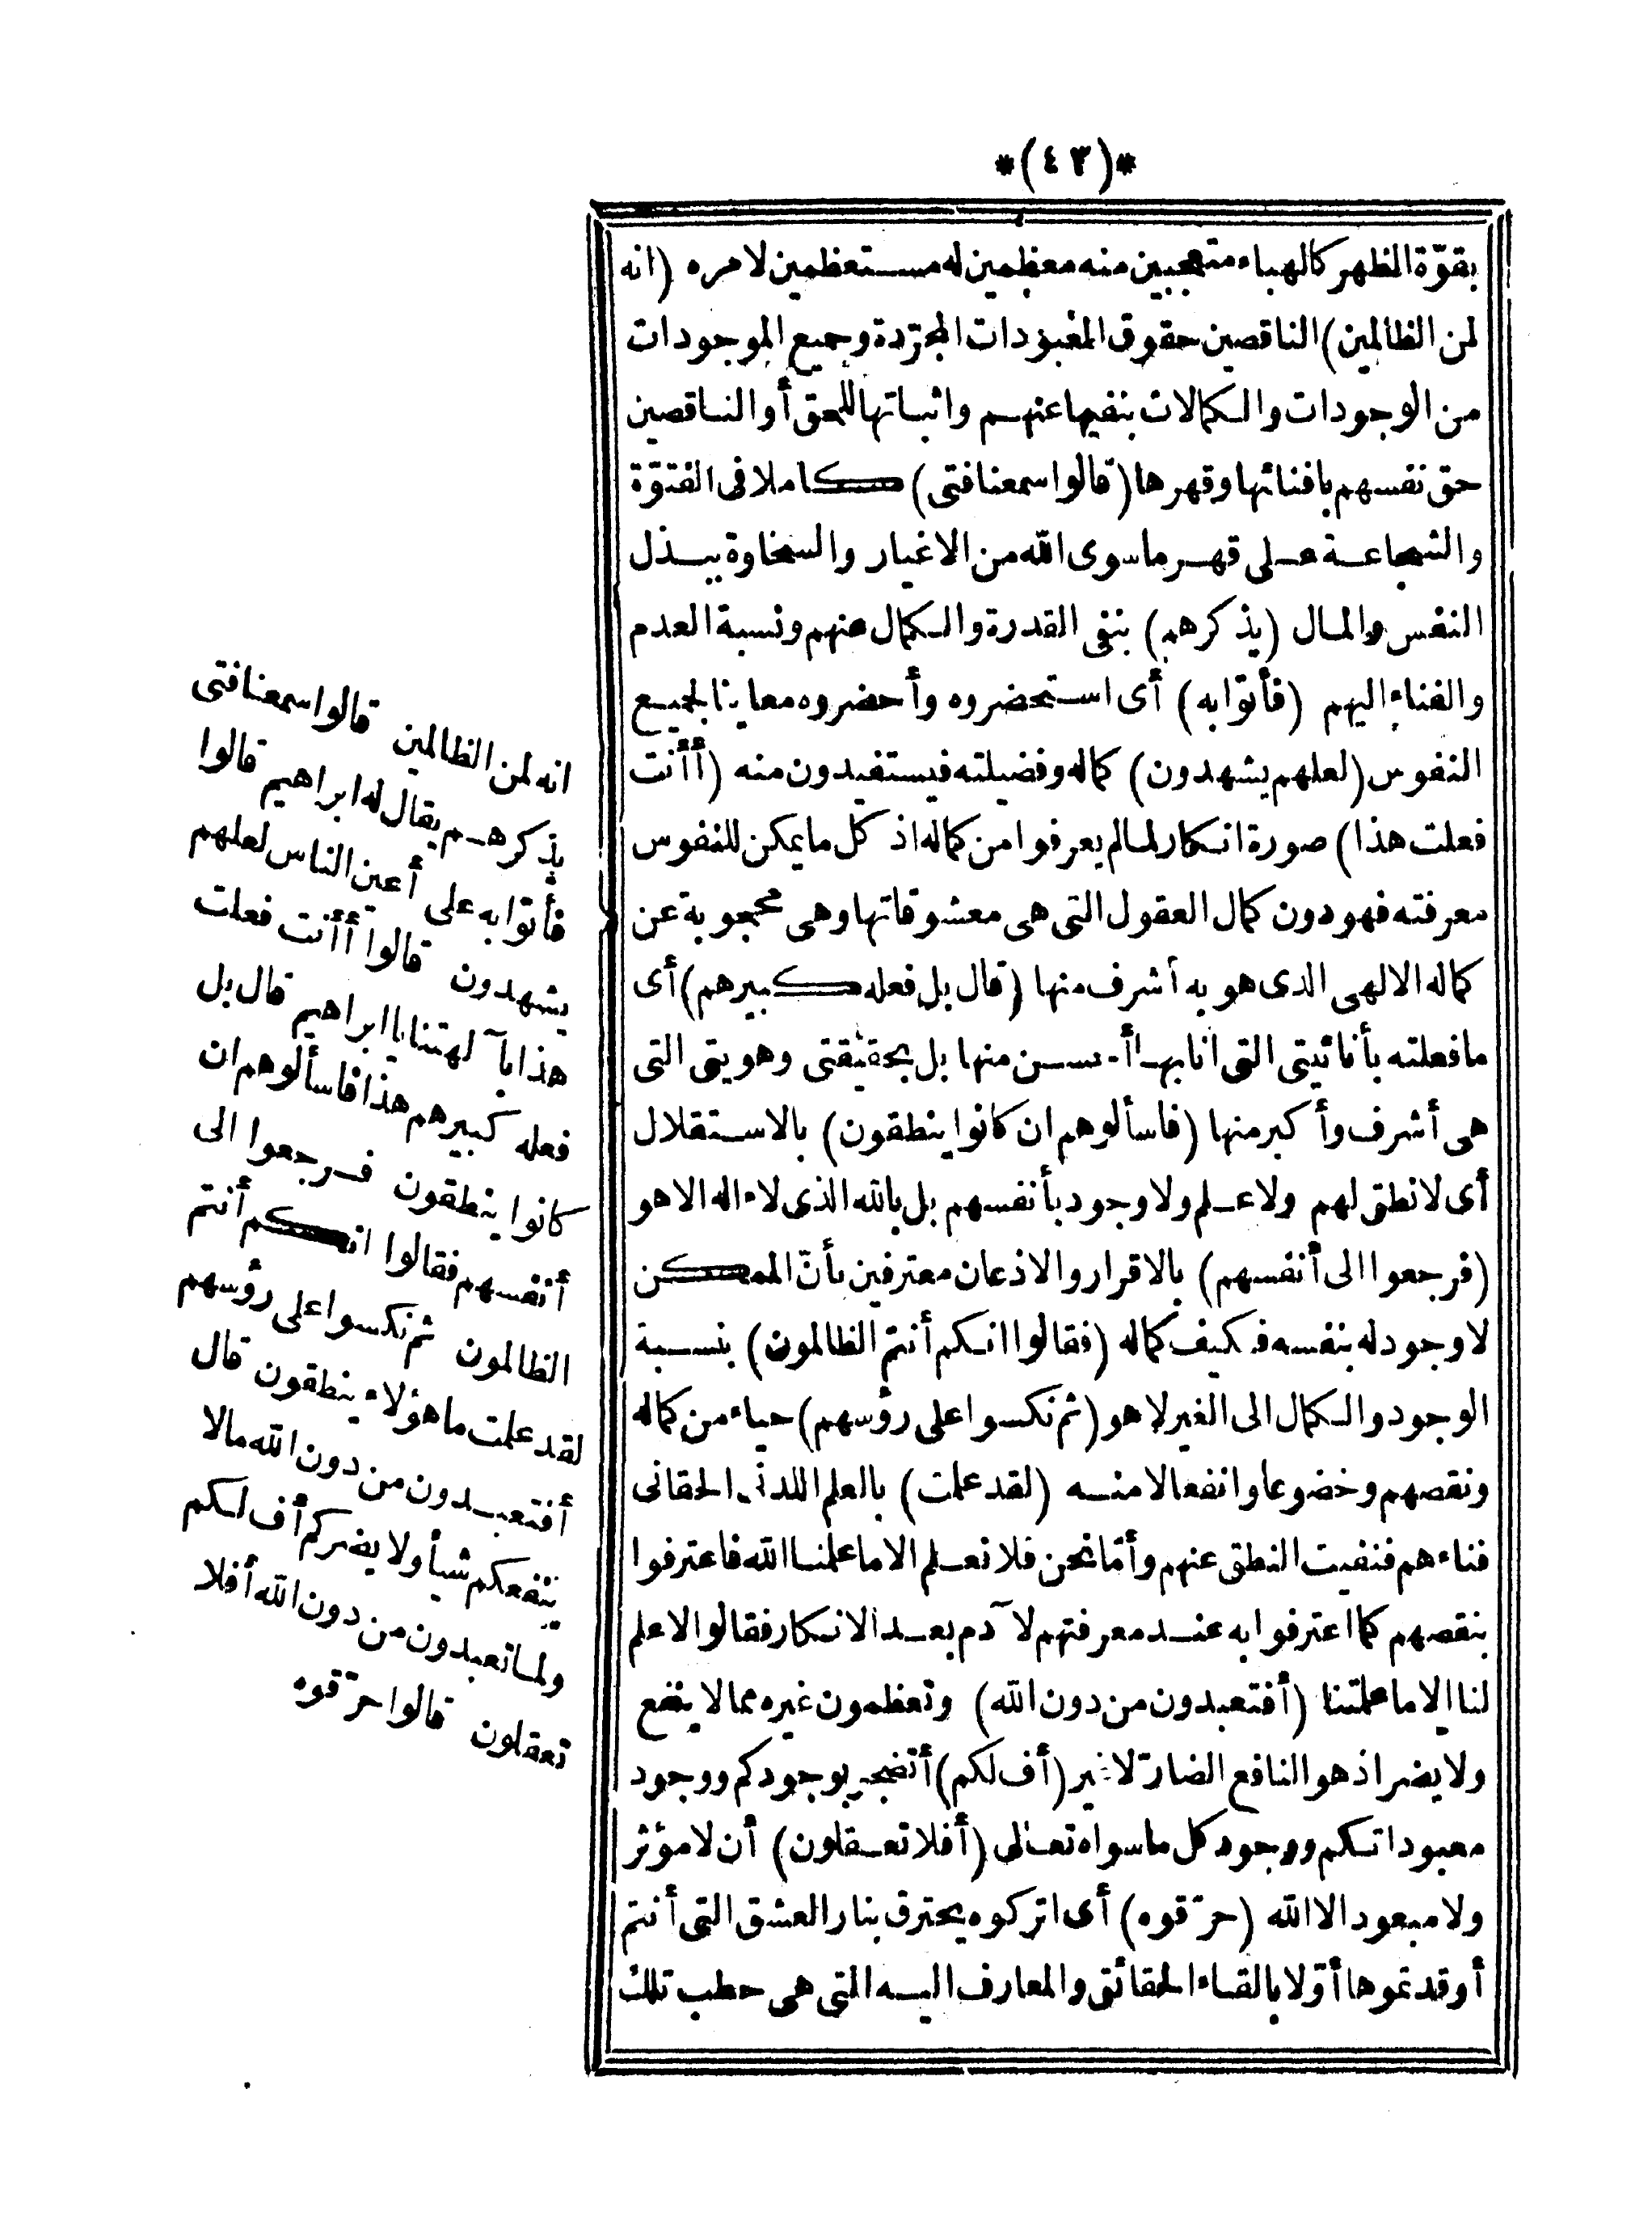 *(٤٣)*
بقوّة الظهر كالهباء متعجبين منه معظمين له مستعظمين لامره (انه
لمن الظالمين) الناقصين حقوق المعبودات المجرّدة وجميع الموجودات
من الوجودات والكمالات بنفيها عنهم واثباتها للحق أو الناقصين
حق نفسهم بافنائها وقهرها (قالوا سمعنا فتى) كاملا فى الفتوّة
والشجاعة على قهر ماسوى الله من الاغيار والسخاوة ببذل
النفس والمال (يذكرهم) بنفى القدرة والكمال عنهم ونسبة العدم
والفناء اليهم (فأتوا به) أى استحضروه وأحضروه معاينا لجميع
النفوس (لعلهم يشهدون) كماله وفضيلته فيستفيدون منه (أأنت
فعلت هذا) صورة انكار لما لم يعرفوا من كماله اذ كل ما يمكن للنفوس
معرفته فهو دون كمال العقول التى هى معشوقاتها وهى محجوبة عن
كماله الالهى الذى هو به أشرف منها (قال بل فعله كبيرهم) أى
ما فعلته بأنائيتى التى أنا بها أحسن منها بل بحقيقتى وهويتى التى
هى أشرف وأكبر منها (فاسألوهم ان كانوا ينطقون) بالاستقلال
أى لا نطق لهم ولا علم ولا وجود بأنفسهم بل بالله الذى لا اله الا هو
(فرجعوا الى أنفسهم) بالاقرار والاذعان معترفين بأنّ الممكن
لا وجود له بنفسه فكيف كماله (فقالوا انكم أنتم الظالمون) بنسبة
الوجود والكمال الى الغير لا هو (ثم نكسوا على رؤسهم) حياء من كماله
ونقصهم وخضوعا وانفعالا منه (لقد علمت) بالعلم اللدنى الحقانى
فناءهم فنفيت النطق عنهم وأمّا نحن فلا نعلم الا ما علمنا الله فاعترفوا
بنقصهم كما اعترفوا به عند معرفتهم لآدم بعد الانكار فقالوا لا علم
لنا الا ما علمتنا (أفتعبدون من دون الله) وتعظمون غيره مما لا ينفع
ولا يضر اذ هو النافع الضارّ لا غير (أف لكم) أتضجر بوجودكم ووجود
معبوداتكم ووجود كل ما سواه تعالى (أفلا تعقلون) أن لا مؤثر
ولا معبود الا الله (حرّقوه) أى اتركوه يحترق بنار العشق التى أنتم
أوقدتموها أوّلا بالقاء الحقائق والمعارف اليه التى هى حطب تلك
انه لمن الظالمين قالوا سمعنا فتى
يذكرهم يقال له ابراهيم قالوا
فأتوا به على أعين الناس لعلهم
يشهدون قالوا أأنت فعلت
هذا بآلهتنا يا ابراهيم قال بل
فعله كبيرهم هذا فاسألوهم ان
كانوا ينطقون فرجعوا الى
أنفسهم فقالوا انكم أنتم
الظالمون ثم نكسوا على رؤسهم
لقد علمت ما هؤلاء ينطقون قال
أفتعبدون من دون الله مالا
ينفعكم شيأ ولا يضركم أف لكم
ولما تعبدون من دون الله أفلا
تعقلون قالوا حرّقوه